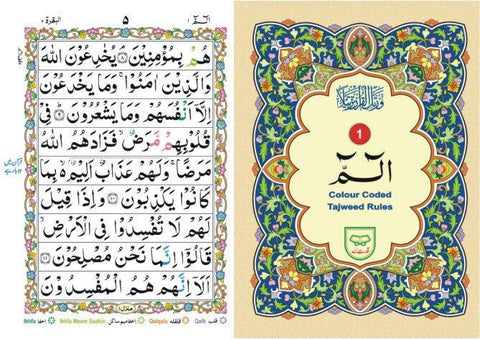 الٓمّٓ ١
٥
البقرة ٢
هُمْ بِمُؤْمِنِيْنَ ۘ ٨ يُخٰدِعُوْنَ اللّٰهَ
وَالَّذِيْنَ اٰمَنُوْا ۚ وَمَا يَخْدَعُوْنَ
اِلَّاۤ اَنْفُسَهُمْ وَمَا يَشْعُرُوْنَ ؕ ٩ فِيْ
قُلُوْبِهِمْ مَّرَضٌ ۙ فَزَادَهُمُ اللّٰهُ
مَرَضًا ۚ وَلَهُمْ عَذَابٌ اَلِيْمٌۢ ۙ بِمَا
كَانُوْا يَكْذِبُوْنَ ١٠ وَاِذَا قِيْلَ
لَهُمْ لَا تُفْسِدُوْا فِي الْاَرْضِ ۙ
قَالُوْۤا اِنَّمَا نَحْنُ مُصْلِحُوْنَ ١١
اَلَاۤ اِنَّهُمْ هُمُ الْمُفْسِدُوْنَ
منزل ١
Ikhfa اخفا Ikhfa Meem Saakin اخفا میم ساکن Qalqala قلقله Qalb قلب
1
الٓمّٓ
Colour Coded
Tajweed Rules